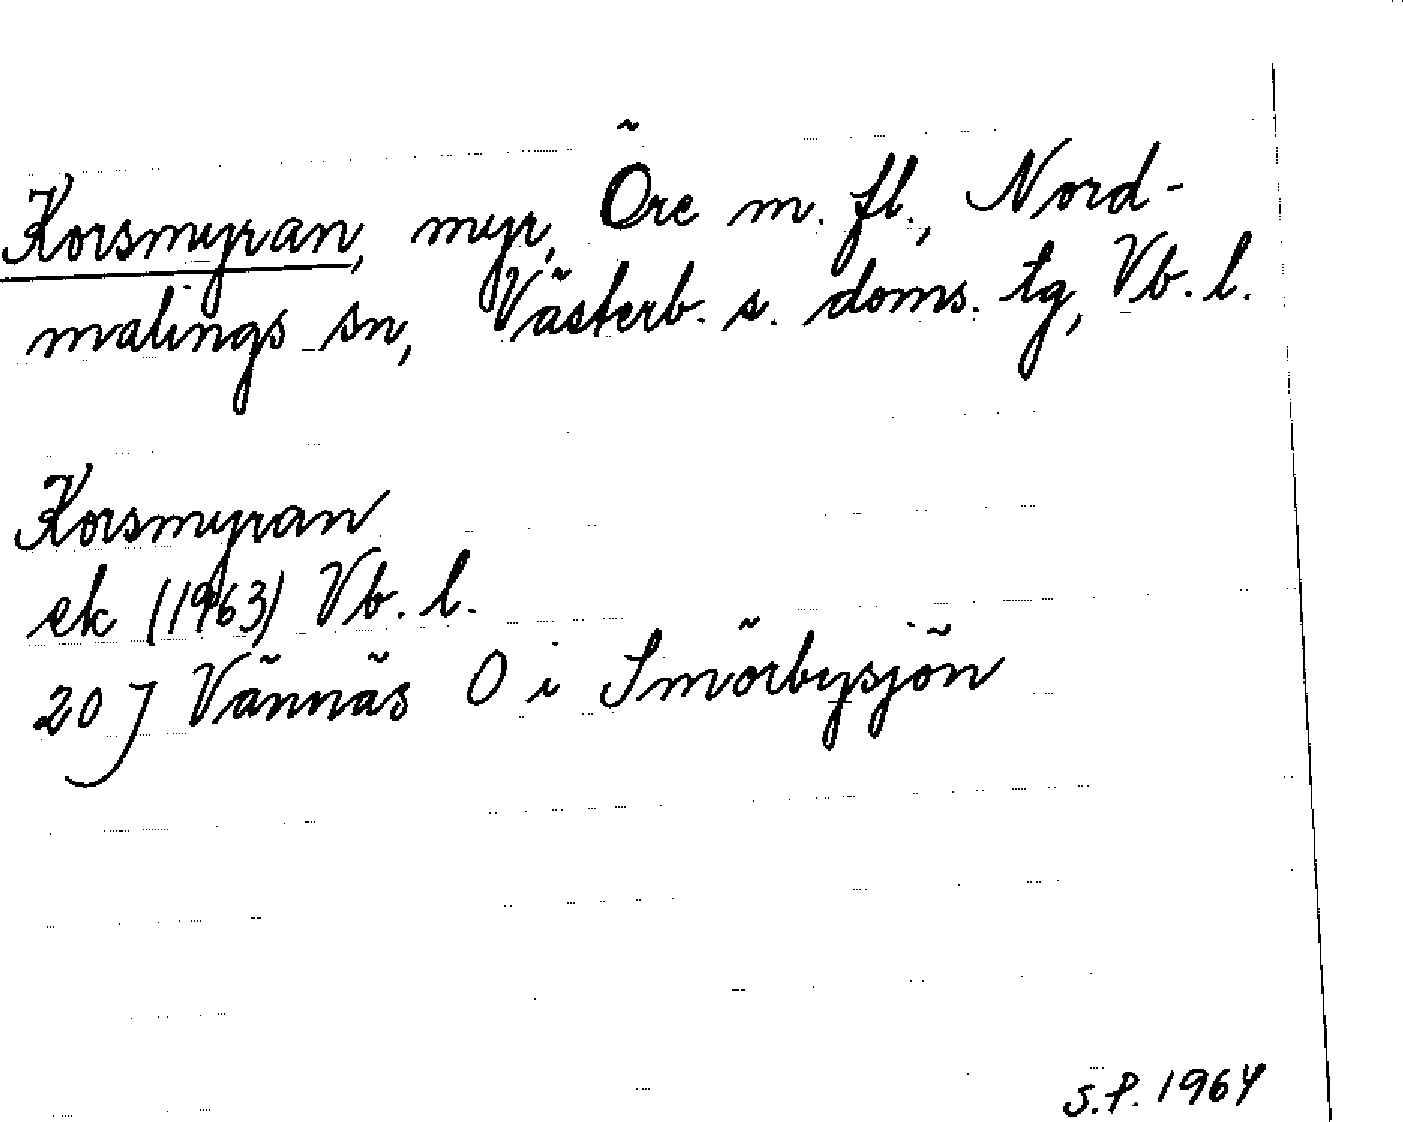 Korsmyran, myr, Öre m. fl., Nord-
malings sn, Västerb. s. doms. tg, Vb. l.
Korsmyran
ek (1963) Vb. l.
20 J Vännäs O i Smörbysjön
S.P. 1964